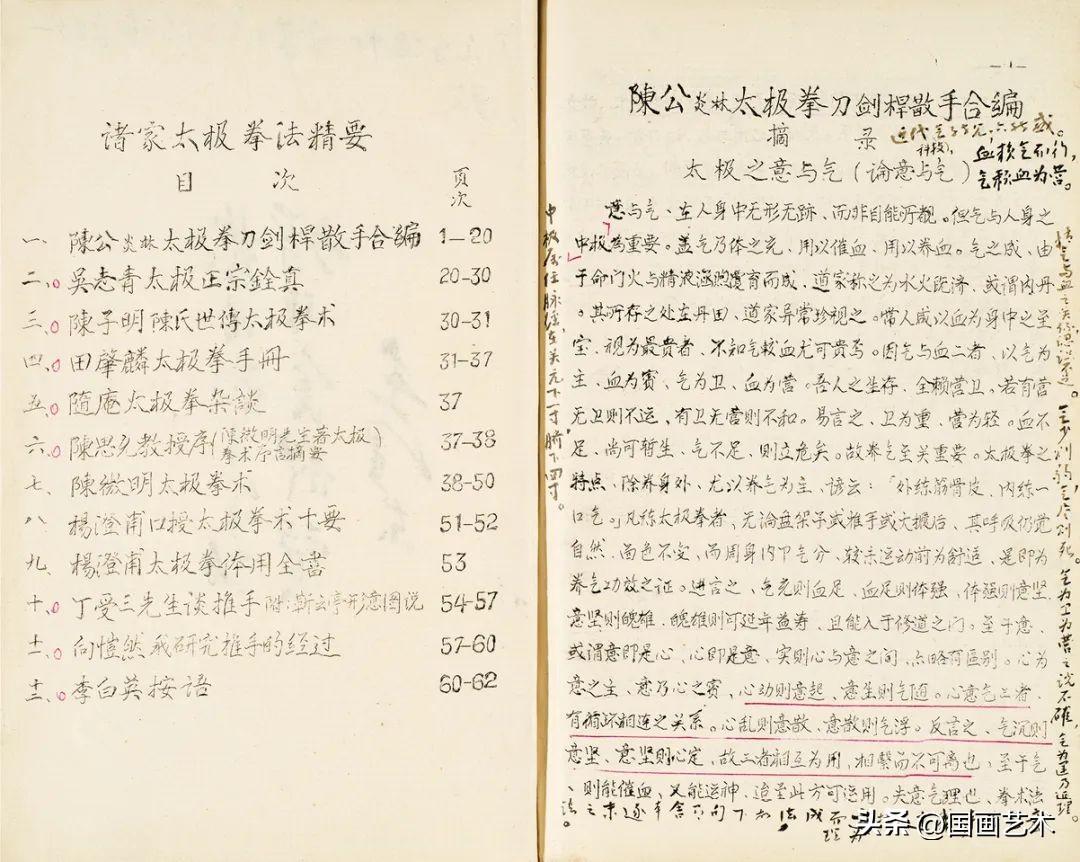 诸家太极拳法精要
目 次
页次
一、陳公炎林太极拳刀劍桿散手合編 1—20
二、吳志青太极正宗銓真 20-30
三、陳子明陳氏世傳太极拳术 30-31
四、田肇麟太极拳手冊 31-37
五、隨庵太极拳杂談 37
六、陳思允教授序(陳微明先生著太极拳术序言摘要) 37-38
七、陳微明太极拳术 38-50
八、楊澄甫口授太极拳术十要 51-52
九、楊澄甫太极拳体用全書 53
十、丁受三先生谈推手 附:靳云亭形意图说 54-57
十一、向愷然我研究推手的经过 57-60
十二、李白英按语 60-62
—1—
陳公炎林太极拳刀劍桿散手合編
摘 录
太极之意与气(論意与气)
血赖气以行,
气赖血为营。
意与气、在人身中无形无跡、而非目能所覩。但气与人身之
中极为重要。盖气乃体之充、用以催血、用以养血。气之成、由
于命门火与精液涵煦覆育而成、道家称之为水火既济、或谓内丹
。其所存之处在丹田、道家异常珍视之。常人咸以血为身中之至
宝、视为最贵者、不知气较血尤可贵焉。因气与血二者、以气为
主、血为賓、气为卫、血为营。吾人之生存、全赖营卫、若有营
无卫则不运、有卫无营则不和。易言之、卫为重、营为轻。血不
足、尚可暂生、气不足、则立危矣。故养气至关重要。太极拳之
特点、除养身外、尤以养气为主、谚云:「外练筋骨皮、内练一
口气」凡练太极拳者、无论盘架子或推手或大捋后、其呼吸仍觉
自然、面色不变、而周身内部气分、较未运动前为舒适、是即为
养气功效之证。进言之、气充则血足、血足则体强、体强则意坚
意坚则魄雄、魄雄则可延年益寿、且能入于修道之门。至于意、
或谓意即是心、心即是意、实则心与意之间、亦略有区别。心为
意之主、意乃心之賓、心动则意起、意生则气随。心意气三者、
有循环相连之关系。心乱则意散、意散则气浮。反言之、气沉则
意坚、意坚则心定、故三者相互为用、相繫而不可离也、至于气
则能催血、又能运神、迨至此方可运用。夫意气理也、拳术法
中极属任脉经、在关元下一寸脐下四寸。
头条 @国画艺术